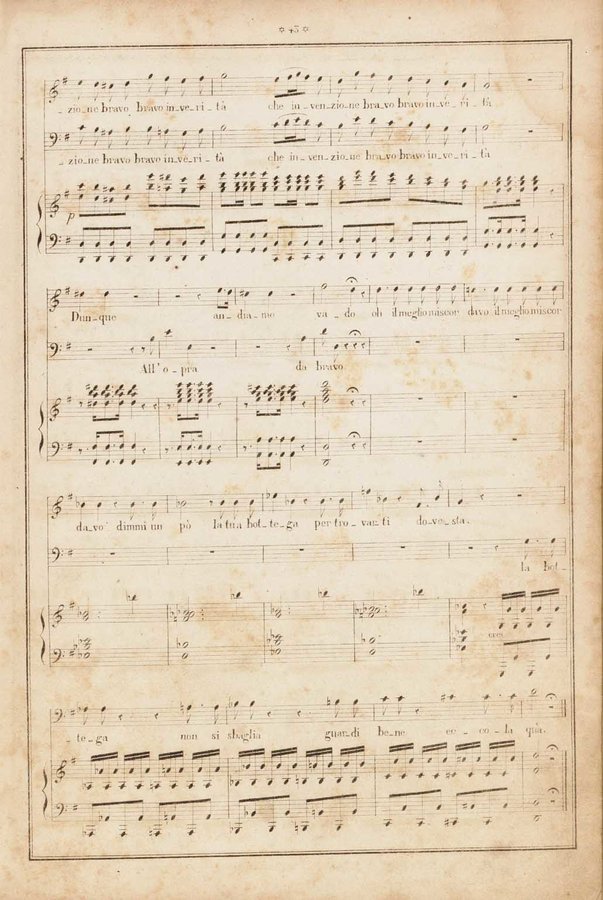 * 43 *
- zio - ne bravo bravo in - ve - ri - tà che in - ven - zio - ne bra - vo bravo in - ve - ri - tà
- zio - ne bravo bravo in - ve - ri - tà che in - ven - zio - ne bra - vo bravo in - ve - ri - tà
p
Dun - que an - dia - mo va - do oh il meglio mi scor davo il meglio mi scor
All' o - pra da bravo
da - vo dimmi un pò la tua bot - te - ga per tro - var - ti do - v'e sta.
la bot -
cres
- te - ga non si sbaglia guar - di be - ne ec - co - la quà.